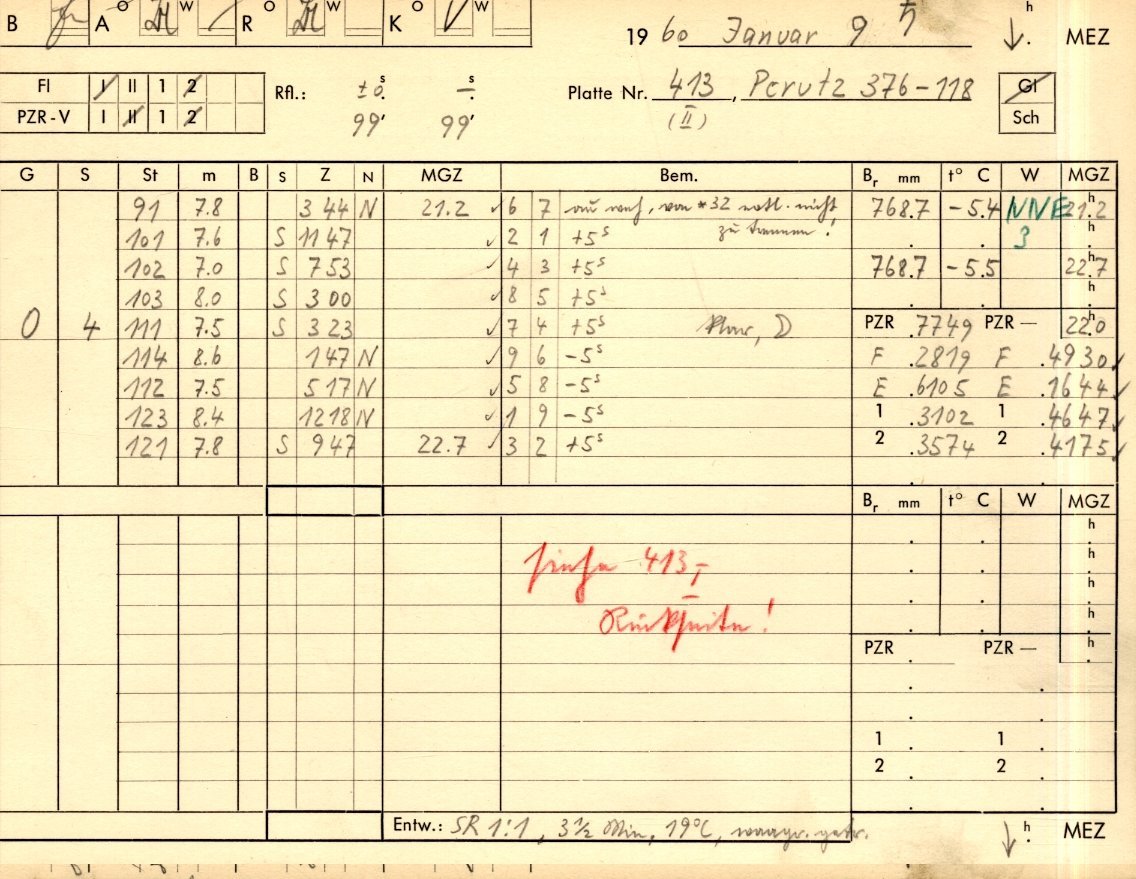 B A O W R O W K O W
19 60 Januar 9 ♄ h MEZ
Fl I II 1 2
PZR-V I II 1 2
Rfl.: ±0.s –.s
99' 99'
Platte Nr. 413, Perutz 376-118
(II)
Gl
Sch
G S St m B S Z N MGZ Bem. Br mm t° C W MGZ
91 7.8 3 44 N 21.2 ✓ 6 7 nicht 768.7 -5.4 NNE 21.2 h
101 7.6 S 11 47 ✓ 2 1 +5s zu trennen! 3 h
102 7.0 S 7 53 ✓ 4 3 +5s 768.7 -5.5 22.7 h
103 8.0 S 3 00 ✓ 8 5 +5s h
0 4 111 7.5 S 3 23 ✓ 7 4 +5s klar, D PZR .7749 PZR — 22.0 h
114 8.6 1 47 N ✓ 9 6 -5s F .2819 F .4930 ✓
112 7.5 5 17 N ✓ 5 8 -5s E .6105 E .1644 ✓
123 8.4 12 18 N ✓ 1 9 -5s 1 .3102 1 .4647 ✓
121 7.8 S 9 47 22.7 ✓ 3 2 +5s 2 .3574 2 .4175 ✓
Br mm t° C W MGZ
h
h
h
h
h
siehe 413,
Rückseite!
PZR . PZR — .
1 . 1 .
2 . 2 .
Entw.: SR 1:1, 3½ Min, 19°C, h MEZ